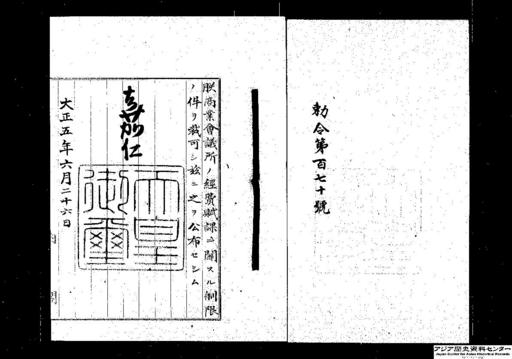 勅令第百七十號
朕商業會議所ノ經費賦課ニ關スル制限
ノ件ヲ裁可シ茲ニ之ヲ公布セシム
嘉仁
天皇御璽
大正五年六月二十六日
内閣
アジア歴史資料センター
Japan Center for Asian Historical Records